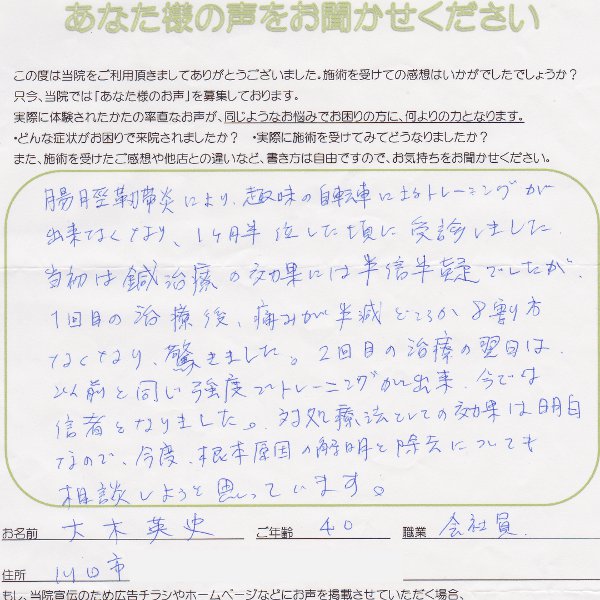 あなた様の声をお聞かせください
この度は当院をご利用頂きましてありがとうございました。施術を受けての感想はいかがでしたでしょうか?
只今、当院では「あなた様のお声」を募集しております。
実際に体験されたかたの率直なお声が、同じようなお悩みでお困りの方に、何よりの力となります。
・どんな症状がお困りで来院されましたか? ・実際に施術を受けてみてどうなりましたか?
また、施術を受けたご感想や他店との違いなど、書き方は自由ですので、お気持ちをお聞かせください。
腸脛靭帯炎により、趣味の自転車によるトレーニングが
出来なくなり、1ヶ月半位した頃に受診しました。
当初は鍼治療の効果には半信半疑でしたが、
1回目の治療後、痛みが半減どころか8割方
なくなり、驚きました。2回目の治療の翌日は、
以前と同じ強度でトレーニングが出来、今では
信者となりました。対処療法としての効果は明白
なので、今度、根本原因の解明と除去についても
相談しようと思っています。
お名前 大木英史 ご年齢 40 職業 会社員.
住所 川口市
もし、当院宣伝のため広告チラシやホームページなどにお声を掲載させていただく場合、